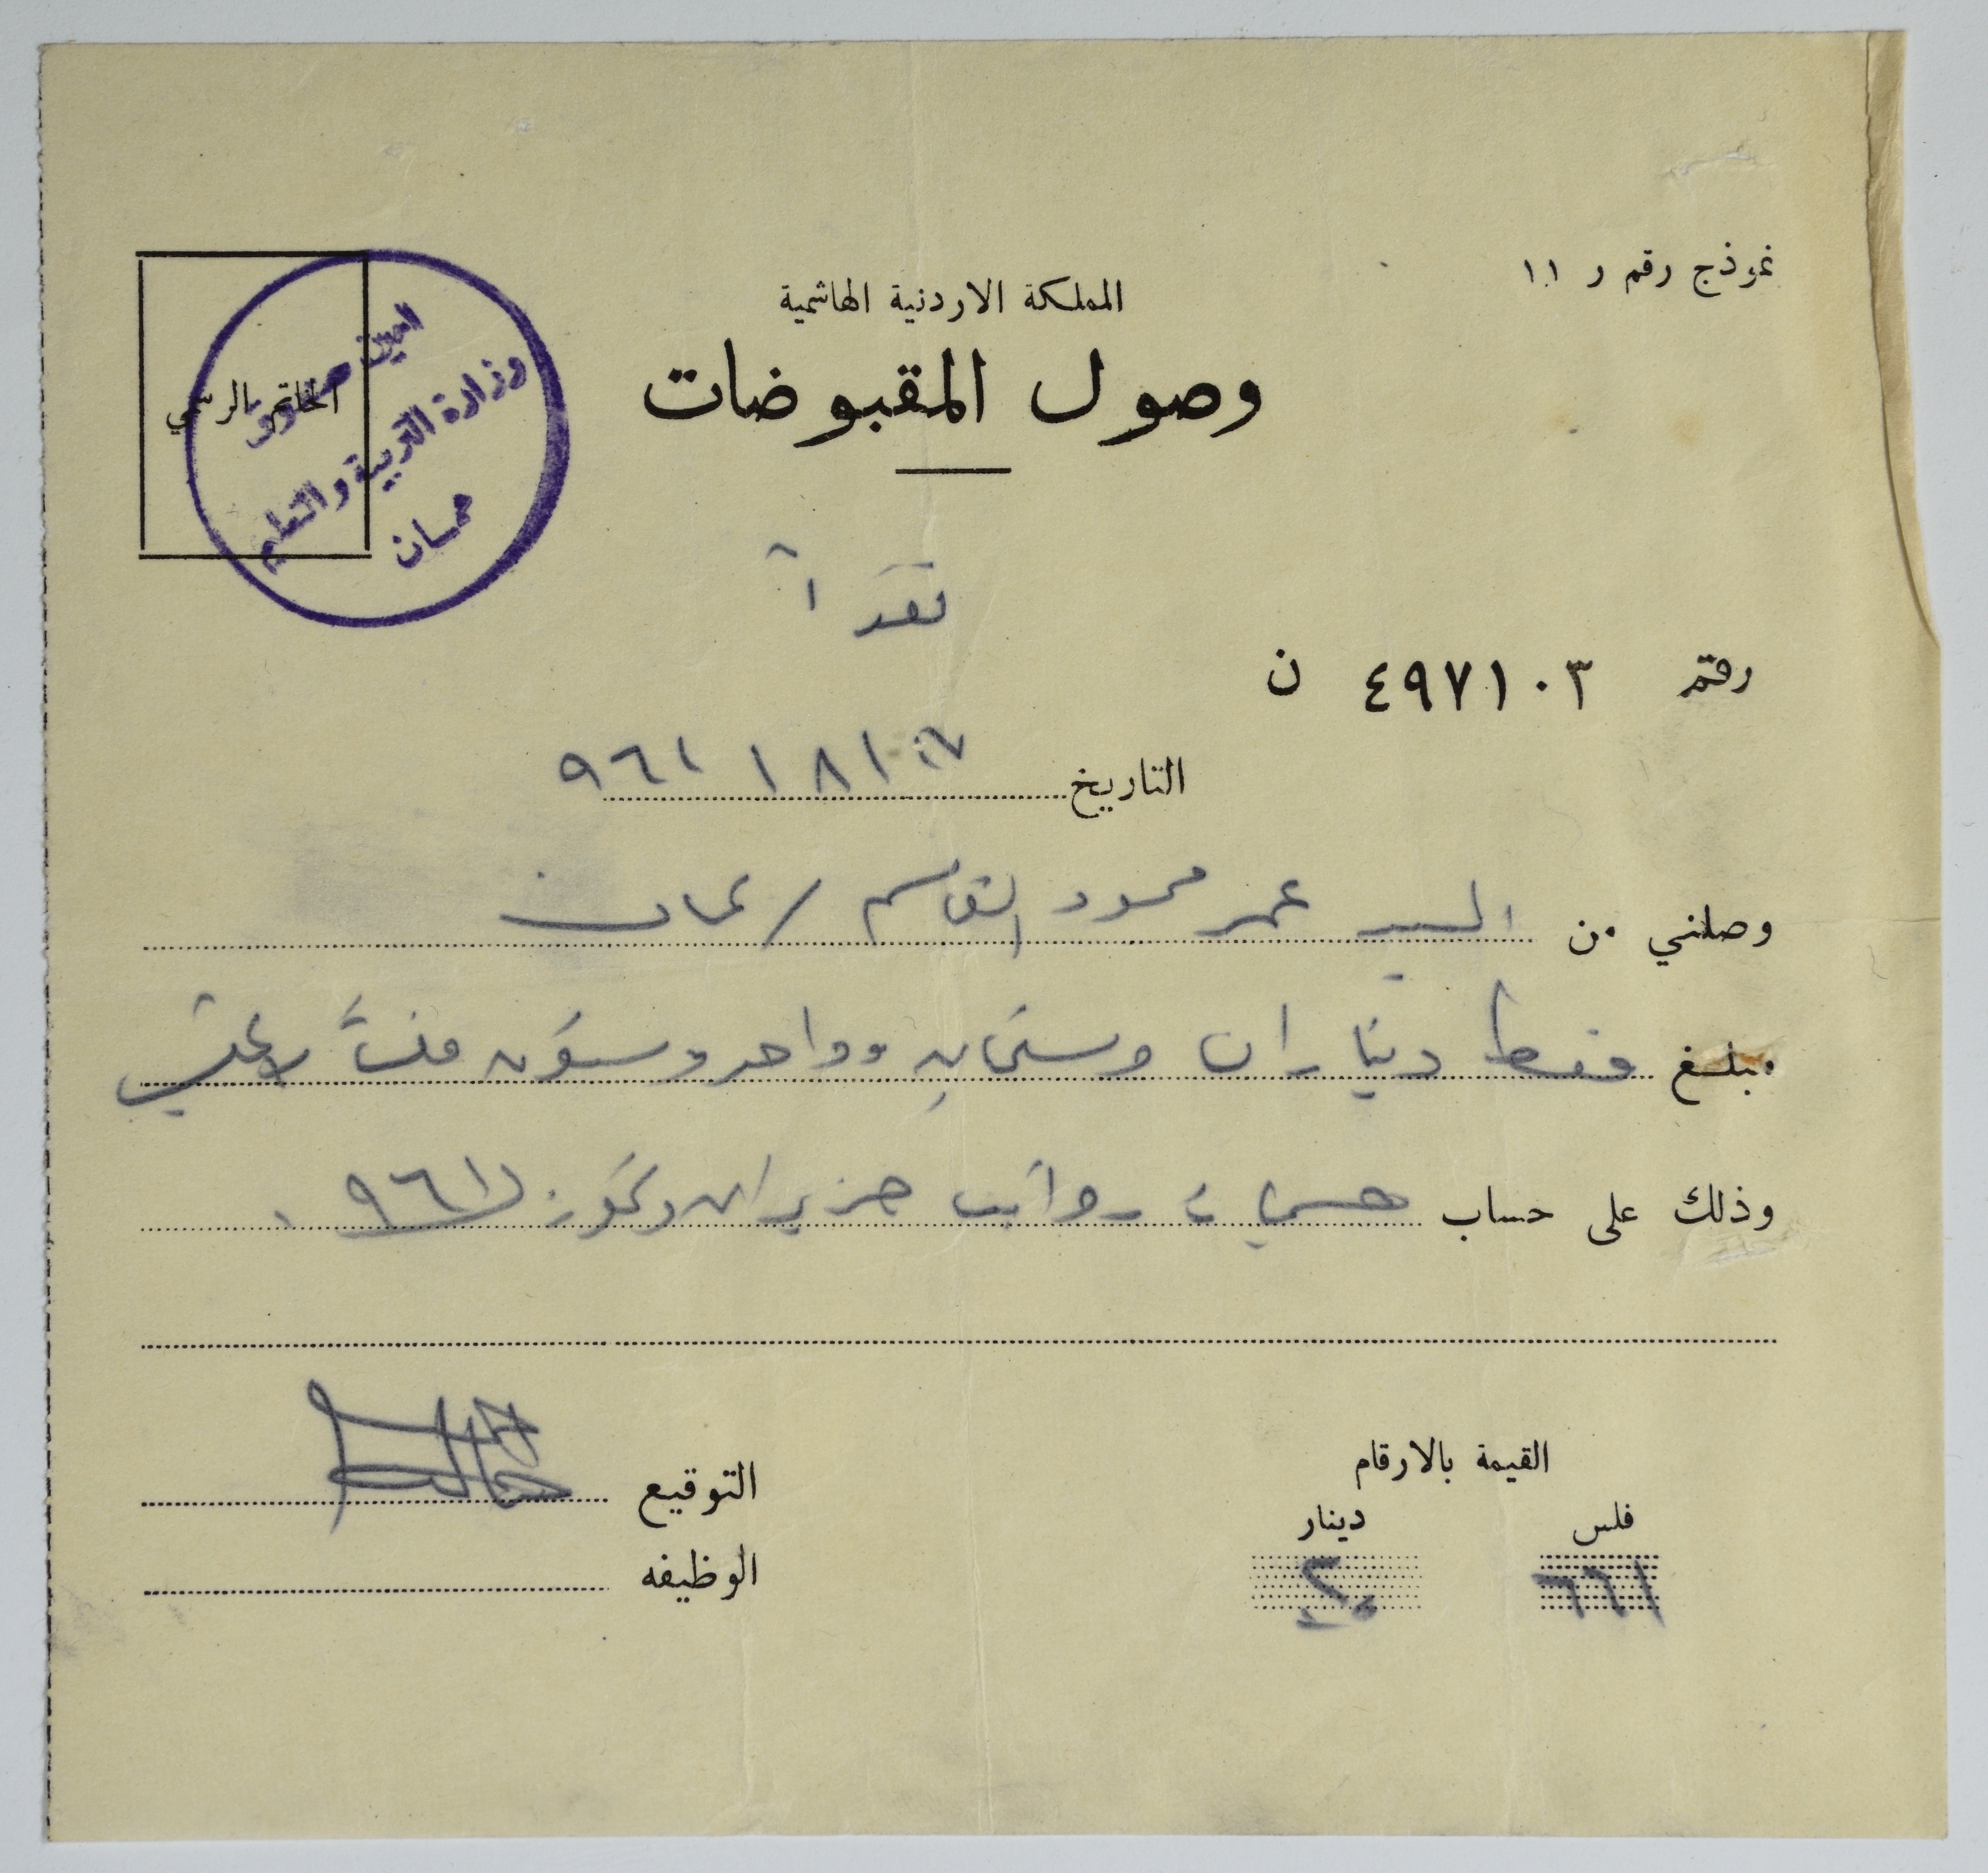 نموذج رقم ر ١١
المملكة الاردنية الهاشمية
وصول المقبوضات
الخاتم الرسمي
امين صندوق
وزارة التربية والتعليم
عمان
نقداً
رقم ٤٩٧١٠٣ ن
التاريخ ١٧ / ٨ / ٩٦١
وصلني من السيد عمر محمود القاسم / عمان
مبلغ فقط ديناران وستماية وواحد وستون فلساً لا غير
وذلك على حساب حسميات رواتب حزيران وتموز ٩٦١
القيمة بالارقام
فلس دينار
٦٦١ ٢
التوقيع
الوظيفه